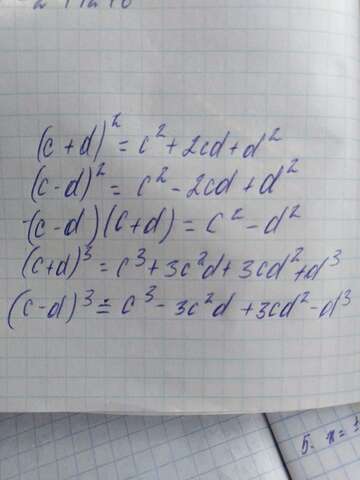 (c+d)² = c² + 2cd + d²
(c-d)² = c² - 2cd + d²
-(c-d)(c+d) = c² - d²
(c+d)³ = c³ + 3c²d + 3cd² + d³
(c-d)³ = c³ - 3c²d + 3cd² - d³
5. x =